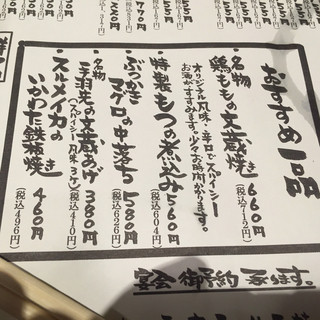 おすすめ一品
名物
鶏ももの文蔵焼き 660円
(税込712円)
オリジナル風味・辛口でスパイシー
お酒がすすみます。少々お時間かかります。
特製もつの煮込み 560円
(税込604円)
ぶつかき
マグロの中落ち 580円
(税込626円)
名物
手羽先の文蔵あげ 380円
(スパイシー風味 3ケ) (税込410円)
スルメイカの
いかわた鉄板焼き 460円
(税込496円)
宴会御予約承ります。